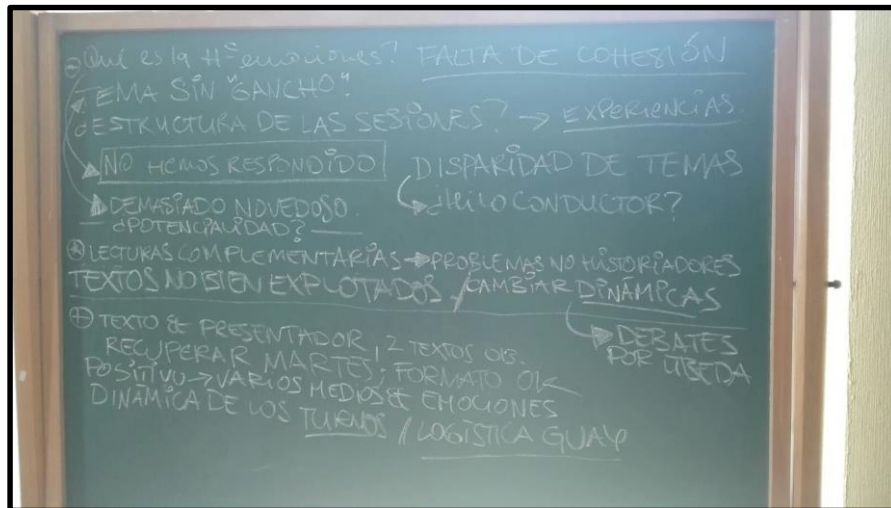 ⊖ Qué es la Hª emociones? FALTA DE COHESIÓN
TEMA SIN "GANCHO".
¿ESTRUCTURA DE LAS SESIONES? → EXPERIENCIAS.
NO HEMOS RESPONDIDO DISPARIDAD DE TEMAS
DEMASIADO NOVEDOSO. ¿HILO CONDUCTOR?
¿POTENCIALIDAD?
LECTURAS COMPLEMENTARIAS → PROBLEMAS NO HISTORIADORES
TEXTOS NO BIEN EXPLOTADOS / CAMBIAR DINÁMICAS
⊕ TEXTO DE PRESENTADOR, 2 TEXTOS OB. DEBATES
RECUPERAR MARTES; FORMATO OK POR ÚBEDA
POSITIVO → VARIOS MEDIOS DE EMOCIONES
DINÁMICA DE LOS TURNOS / LOGÍSTICA GUAY